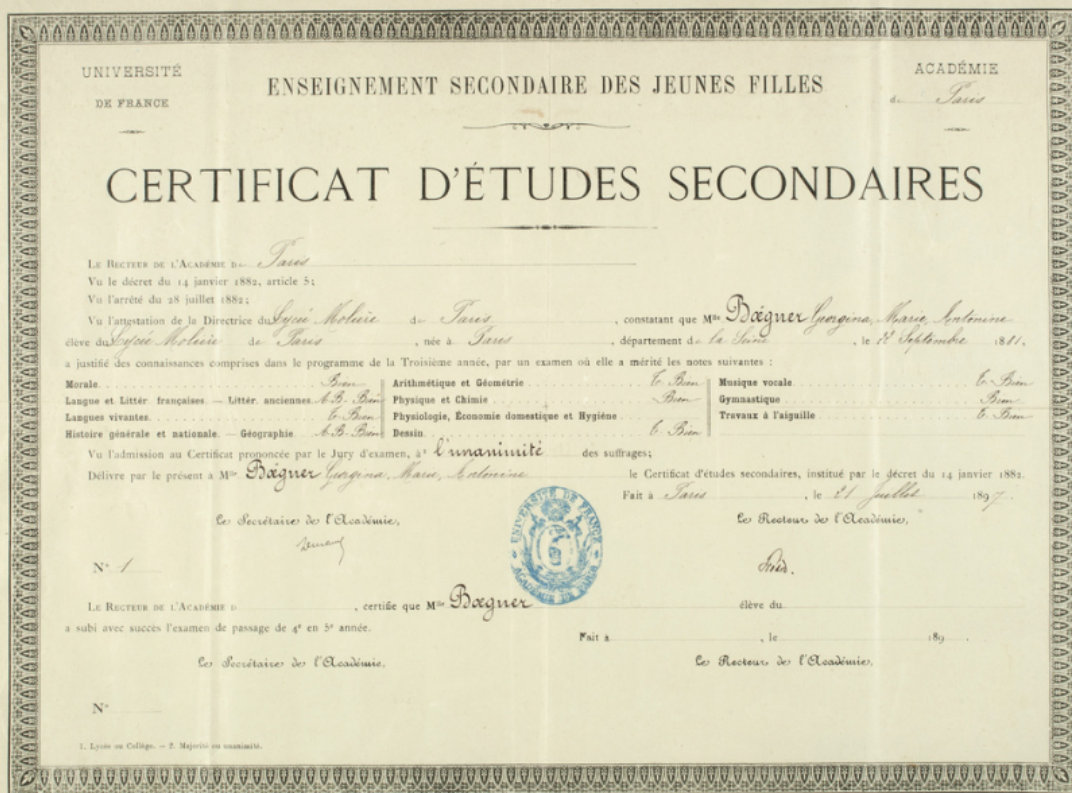 UNIVERSITÉ
DE FRANCE
ENSEIGNEMENT SECONDAIRE DES JEUNES FILLES
ACADÉMIE
de Paris
CERTIFICAT D'ÉTUDES SECONDAIRES
LE RECTEUR DE L'ACADÉMIE DE Paris
Vu le décret du 14 janvier 1882, article 5;
Vu l'arrêté du 28 juillet 1882;
Vu l'attestation de la Directrice du Lycée Molière de Paris, constatant que Mlle Bœgner Georgina, Marie, Antonine
élève du Lycée Molière de Paris, née à Paris, département de la Seine, le 22 Septembre 1881,
a justifié des connaissances comprises dans le programme de la Troisième année, par un examen où elle a mérité les notes suivantes :
Morale. Bien Arithmétique et Géométrie T. Bien Musique vocale. T. Bien
Langue et Littér françaises. — Littér. anciennes. A. B. Bien Physique et Chimie Bien Gymnastique Bien
Langues vivantes. T. Bien Physiologie, Économie domestique et Hygiène. Travaux à l'aiguille T. Bien
Histoire générale et nationale. — Géographie. A. B. Bien Dessin. T. Bien
Vu l'admission au Certificat prononcée par le Jury d'examen, à² l'unanimité des suffrages;
Délivre par le présent à Mlle Bœgner Georgina, Marie, Antonine le Certificat d'études secondaires, institué par le décret du 14 janvier 1882.
Fait à Paris, le 21 Juillet 1897.
Le Secrétaire de l'Académie,
Le Recteur de l'Académie,
UNIVERSITÉ DE FRANCE
ACADÉMIE DE PARIS
N° 1
LE RECTEUR DE L'ACADÉMIE D , certifie que Mlle Bœgner élève du
a subi avec succès l'examen de passage de 4e en 5e année.
Fait à , le 189 .
Le Secrétaire de l'Académie,
Le Recteur de l'Académie,
N°
1. Lycée ou Collège. — 2. Majorité ou unanimité.